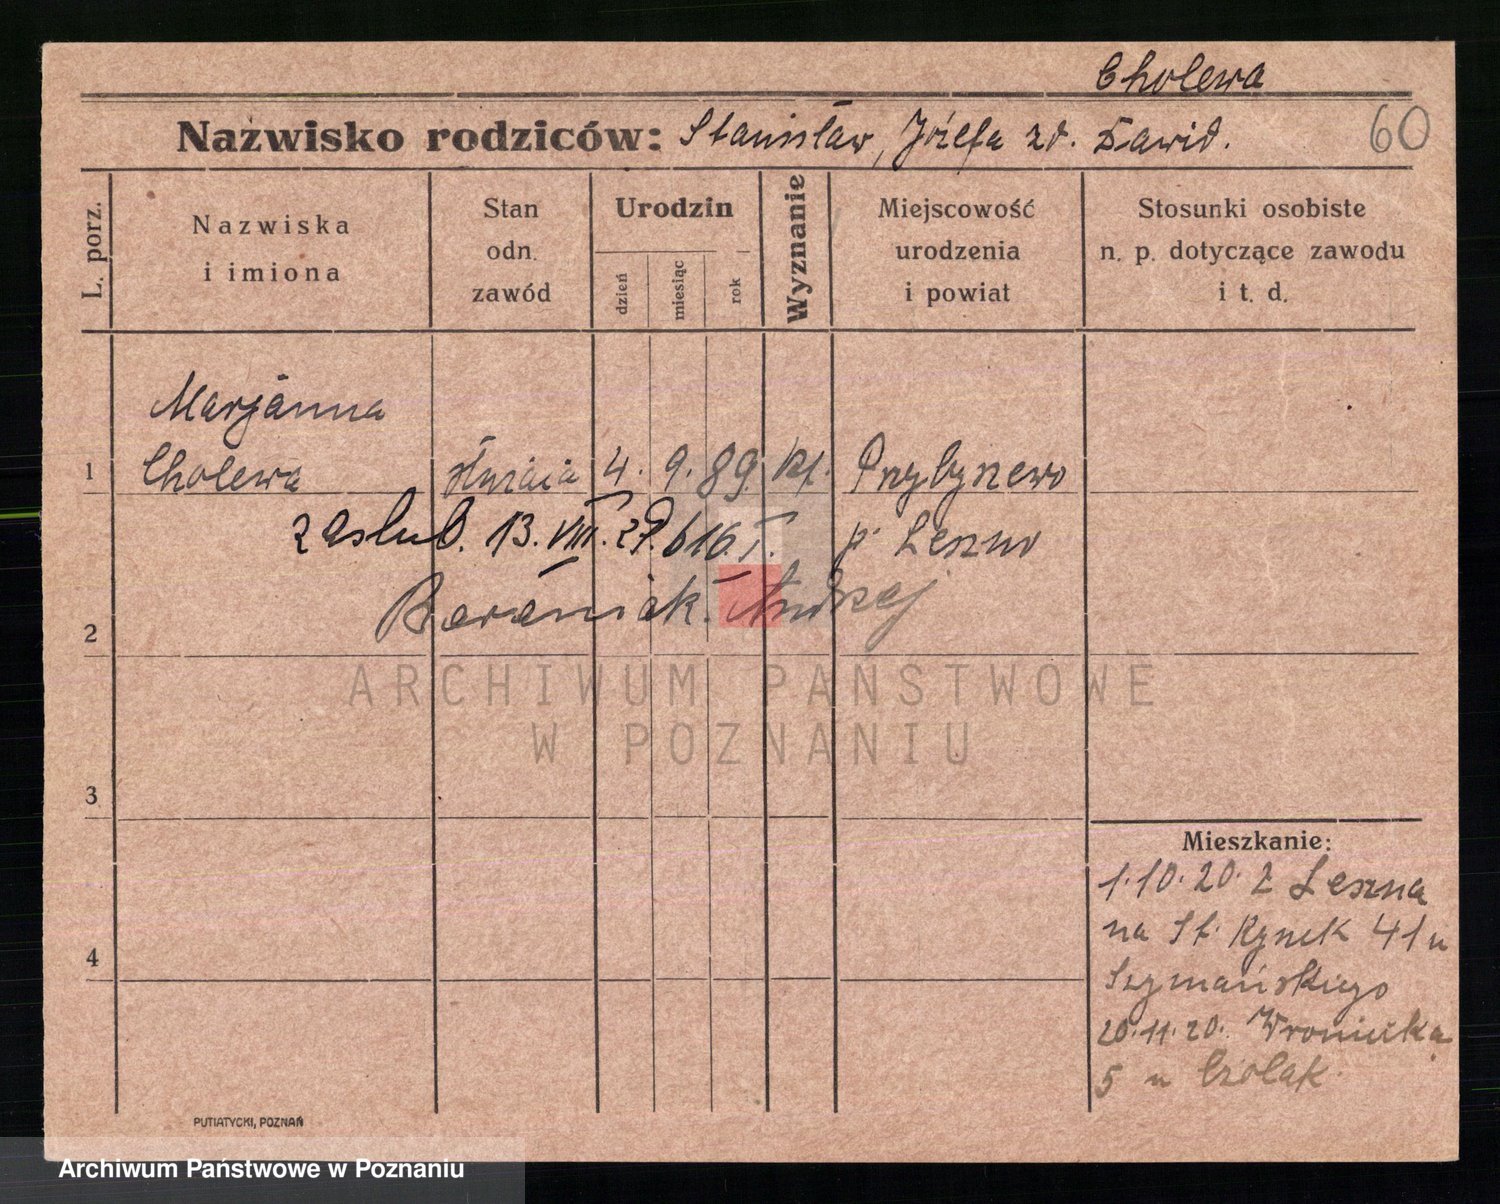 Cholewa
Nazwisko rodziców: Stanisław, Józefa zd. Dawid.
60
L. porz.
Nazwiska
i imiona
Stan
odn.
zawód
Urodzin
dzień
miesiąc
rok
Wyznanie
Miejscowość
urodzenia
i powiat
Stosunki osobiste
n. p. dotyczące zawodu
i t. d.
Marjanna
1 Cholewa służąca 4. 9. 89. kt. Przybyszewo
zaślub. 13. VIII. 27. 616. I. p. Leszno
Baraniak Andrzej
2
ARCHIWUM PAŃSTWOWE
W POZNANIU
3
Mieszkanie:
1.10.20. z Leszna
na St. Rynek 41 u
4
Szymańskiego
20.11.20. Wroniecka
5 u
PUTIATYCKI, POZNAŃ
Archiwum Państwowe w Poznaniu